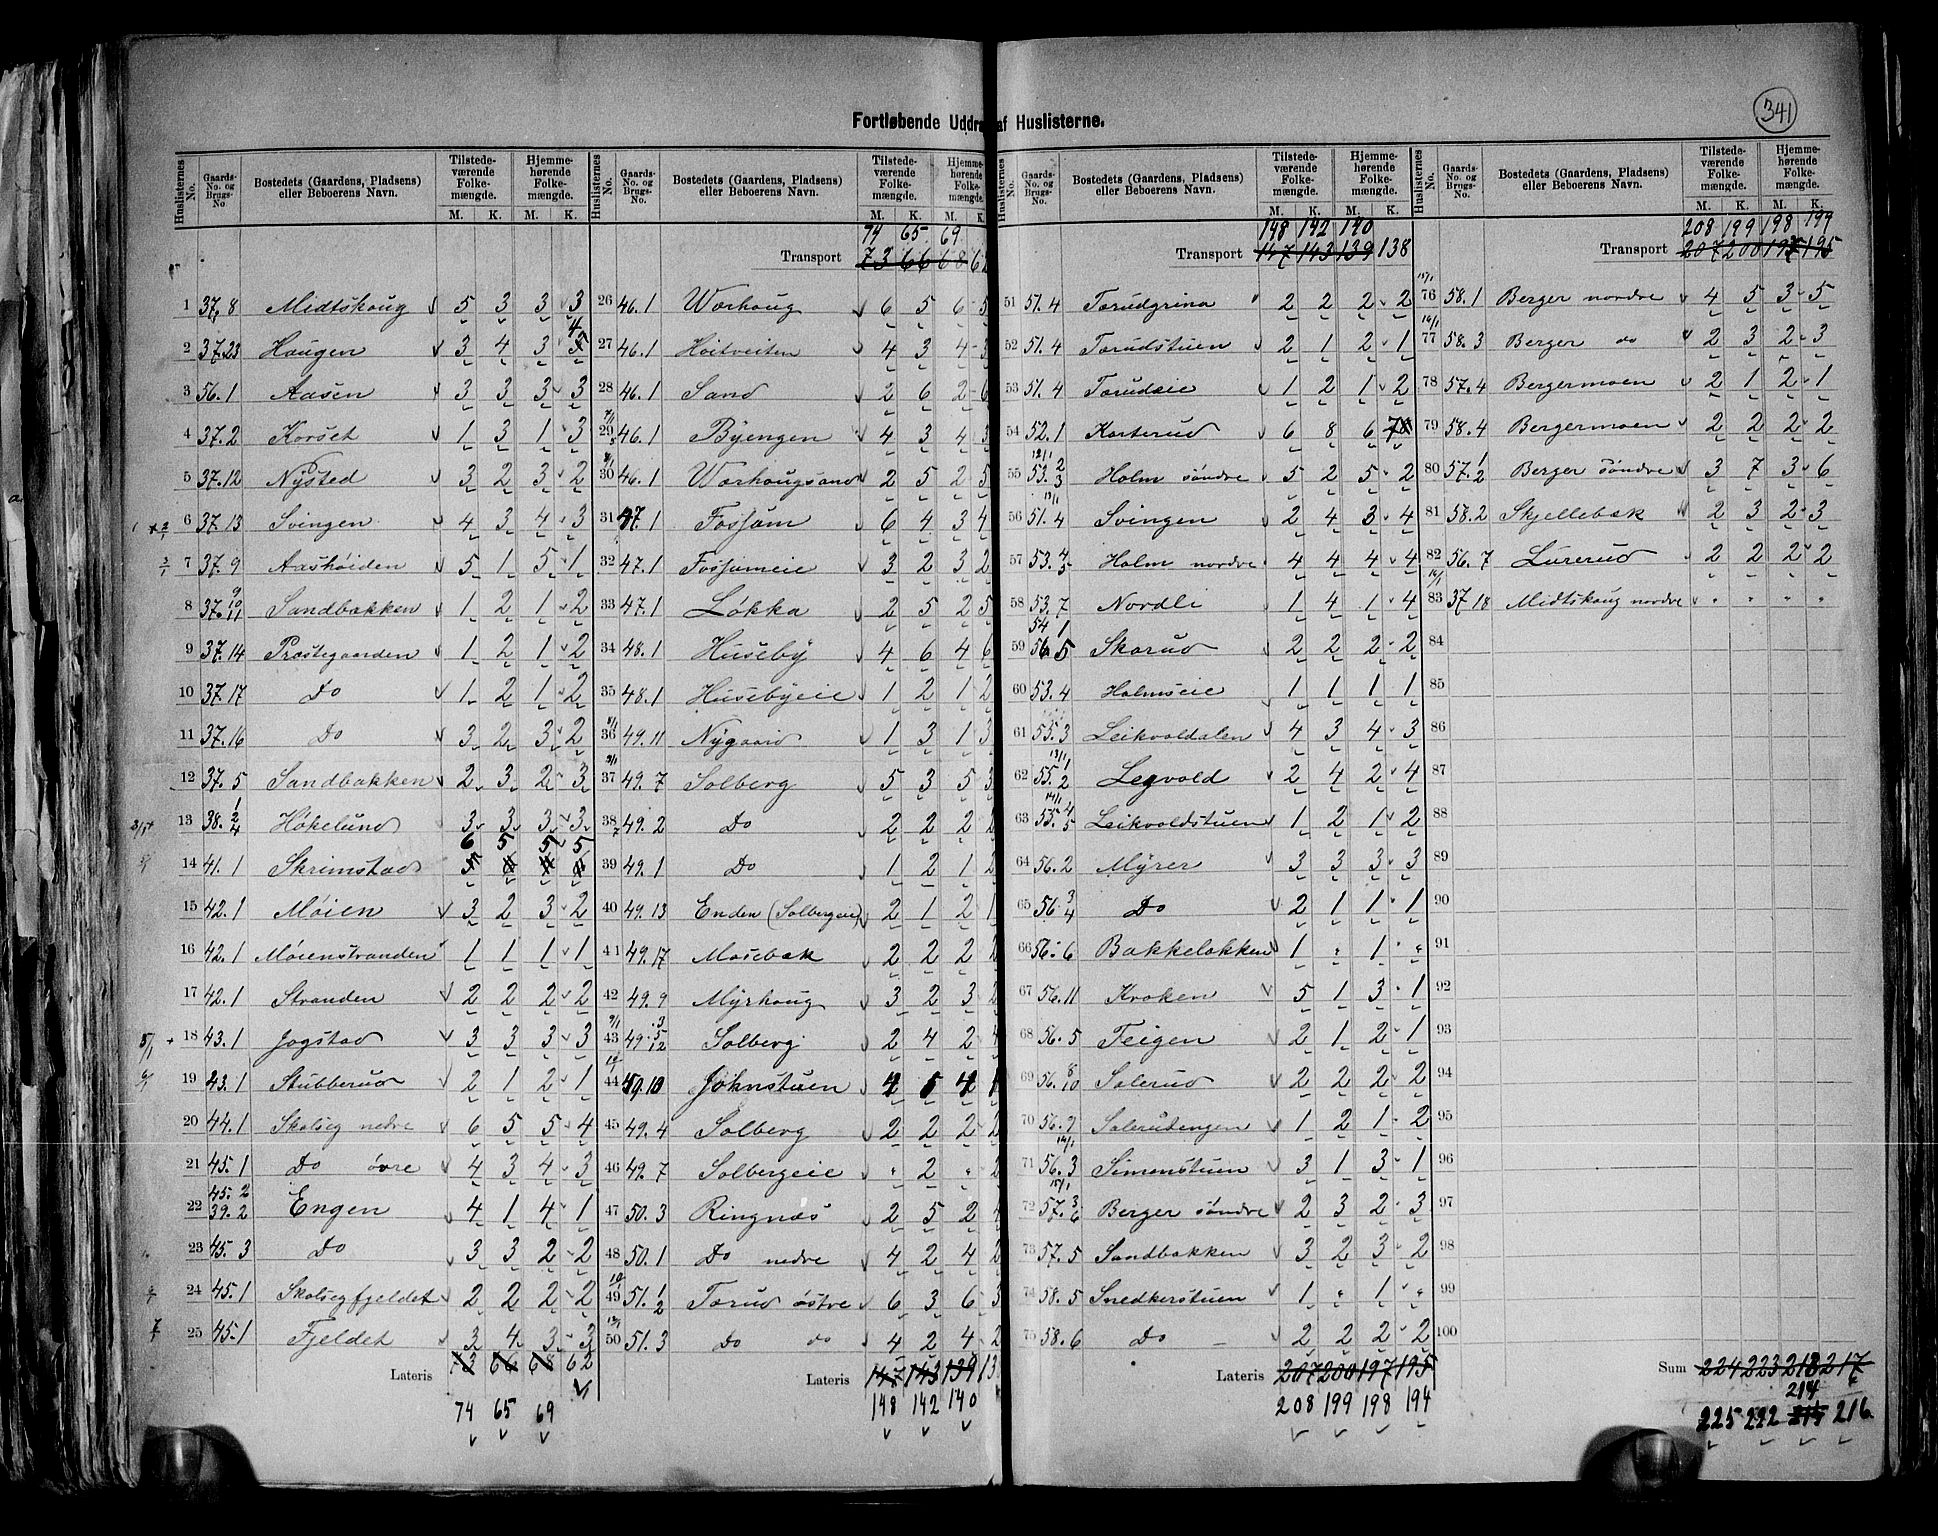 341
Fortløbende Uddra af Huslisterne.
Huslisternes No. Gaards-No. og Brugs-No. Bostedets (Gaardens, Pladsens) eller Beboerens Navn. Tilstedeværende Folkemængde. M. K. Hjemmehørende Folkemængde. M. K.
1 37,8 Midtskoug 5 3 3 3
2 37.23 Haugen 3 4 3 4
3 56.1 Aasen 3 3 3 3
4 37.2 Korset 1 3 1 3
5 37.12 Nysted 3 2 3 2
6 37.13 Svingen 4 3 4 3
7 37.9 Aashøiden 5 1 5 1
8 37. 9 10 11 Sandbakken 1 2 1 2
9 37.14 Præstegaarden 1 2 1 2
10 37.17 Do 1 2 1 2
11 37.16 Do 3 2 3 2
12 37.5 Sandbakken 2 3 2 3
13 38. 1 2 4 Høkelund 3 3 3 3
14 41.1 Skrimstad 6 5 5 5
15 42.1 Møien 3 2 3 2
16 42.1 Møienstranden 1 1 1 1
17 42.1 Stranden 2 2 2 2
18 43.1 Jogstad 3 3 3 3
19 43.1 Stubberud 2 1 2 1
20 44.1 Skolseg nedre 6 5 5 4
21 45.1 Do øvre 4 3 4 3
22 45.2 39.2 Engen 4 1 4 1
23 45.3 Do 3 3 2 2
24 45.1 Skolsegfjeldet 2 2 2 2
25 45.1 Fjeldet 3 4 3 3
Lateris 73 66 68 62
74 65 69
Huslisternes No. Gaards-No. og Brugs-No. Bostedets (Gaardens, Pladsens) eller Beboerens Navn. Tilstedeværende Folkemængde. M. K. Hjemmehørende Folkemængde. M. K.
74 65 69
Transport 73 66 68 62
26 46.1 Worhoug 6 5 6 5
27 46.1 Hoitveiten 4 3 4 3
28 46.1 Sand 2 6 2 6
29 46.1 Byengen 4 3 4 3
30 46.1 Worhougsand 2 5 2 5
31 47.1 Fossum 6 4 3 4
32 47.1 Fossumeie 3 2 3 2
33 47.1 Løkka 2 5 2 5
34 48.1 Huseby 4 6 4 6
35 48.1 Husebyeie 1 2 1 2
36 49.11 Nygaard 1 3 1 3
37 49.7 Solberg 5 3 5 3
38 49.2 Do 2 2 2 2
39 49.1 Do 1 2 1 2
40 49.13 Enden (Solbergeie) 2 1 2 1
41 49.17 Mosebæk 2 2 2 2
42 49.9 Myrhoug 3 2 3 2
43 49. 3 5 12 Solberg 2 4 2 4
44 Johnstuen 4 5 4
45 49.4 Solberg 2 2 2 2
46 49.7 Solbergeie " 2 " 2
47 50.3 Ringnæs 2 5 2 4
48 50.1 Do nedre 4 2 4 2
49 51. 1 2 Torud østre 6 3 6 3
50 51.3 Do do 4 2 4 2
Lateris 147 143 139 13
148 142 140
51 Gaards-No. og Brugs-No. Bostedets (Gaardens, Pladsens) eller Beboerens Navn. Tilstedeværende Folkemængde. M. K. Hjemmehørende Folkemængde. M. K.
148 142 140
Transport 147 143 139 138
51 51.4 Torudgrina 2 2 2 2
52 51.4 Torudstuen 2 1 2 1
53 51.4 Torudeie 1 2 1 2
54 52.1 Korterud 6 8 6 7
55 53. 2 3 Holm søndre 5 2 5 2
56 51.4 Svingen 2 4 3 4
57 53. 4 3 Holm nordre 4 4 4 4
58 53.7 Nordli 1 4 1 4
59 54 1 56 5 Skarud 2 2 2 2
60 53.4 Holmseie 1 1 1 1
61 55.3 Leikvoldalen 4 3 4 3
62 55.2 Legvold 2 4 2 4
63 55. 4 5 Leikvoldstuen 1 2 1 2
64 56.2 Myrer 3 3 3 3
65 56. 3 4 Do 2 1 1 1
66 56.6 Bakkeløkken 1 " 1 "
67 56.11 Kroken 5 1 3 1
68 56.5 Teigen 2 1 2 1
69 56. 8 10 Solerud 2 2 2 2
70 56.2 Solerudengen 1 2 1 2
71 56.3 Simenstuen 3 1 3 1
72 57. 3 6 Berger søndre 2 3 2 3
73 57.5 Sandbakken 3 2 3 2
74 58.5 Snedkerstuen 1 " 1 "
75 58.6 Do 2 2 2 2
Lateris 207 200 197 195
208 199 198 194
Huslisternes No. Gaards-No. og Brugs-No. Bostedets (Gaardens, Pladsens) eller Beboerens Navn. Tilstedeværende Folkemængde. M. K. Hjemmehørende Folkemængde. M. K.
208 199 198 199
Transport 207 200 197 195
76 58.1 Berger nordre 4 5 3 5
77 58.3 Berger do 2 3 2 3
78 57.4 Bergermoen 2 1 2 1
79 58.4 Bergermoen 2 2 2 2
80 57. 1 2 Berger søndre 3 7 3 6
81 58.2 Skjellebæk 2 3 2 3
82 56.7 Lurerud 2 2 2 2
83 37 18 Midtskoug nordre " " " "
84
85
86
87
88
89
90
91
92
93
94
95
96
97
98
99
100
Sum 224 223 213 217
214
225 222 215 216